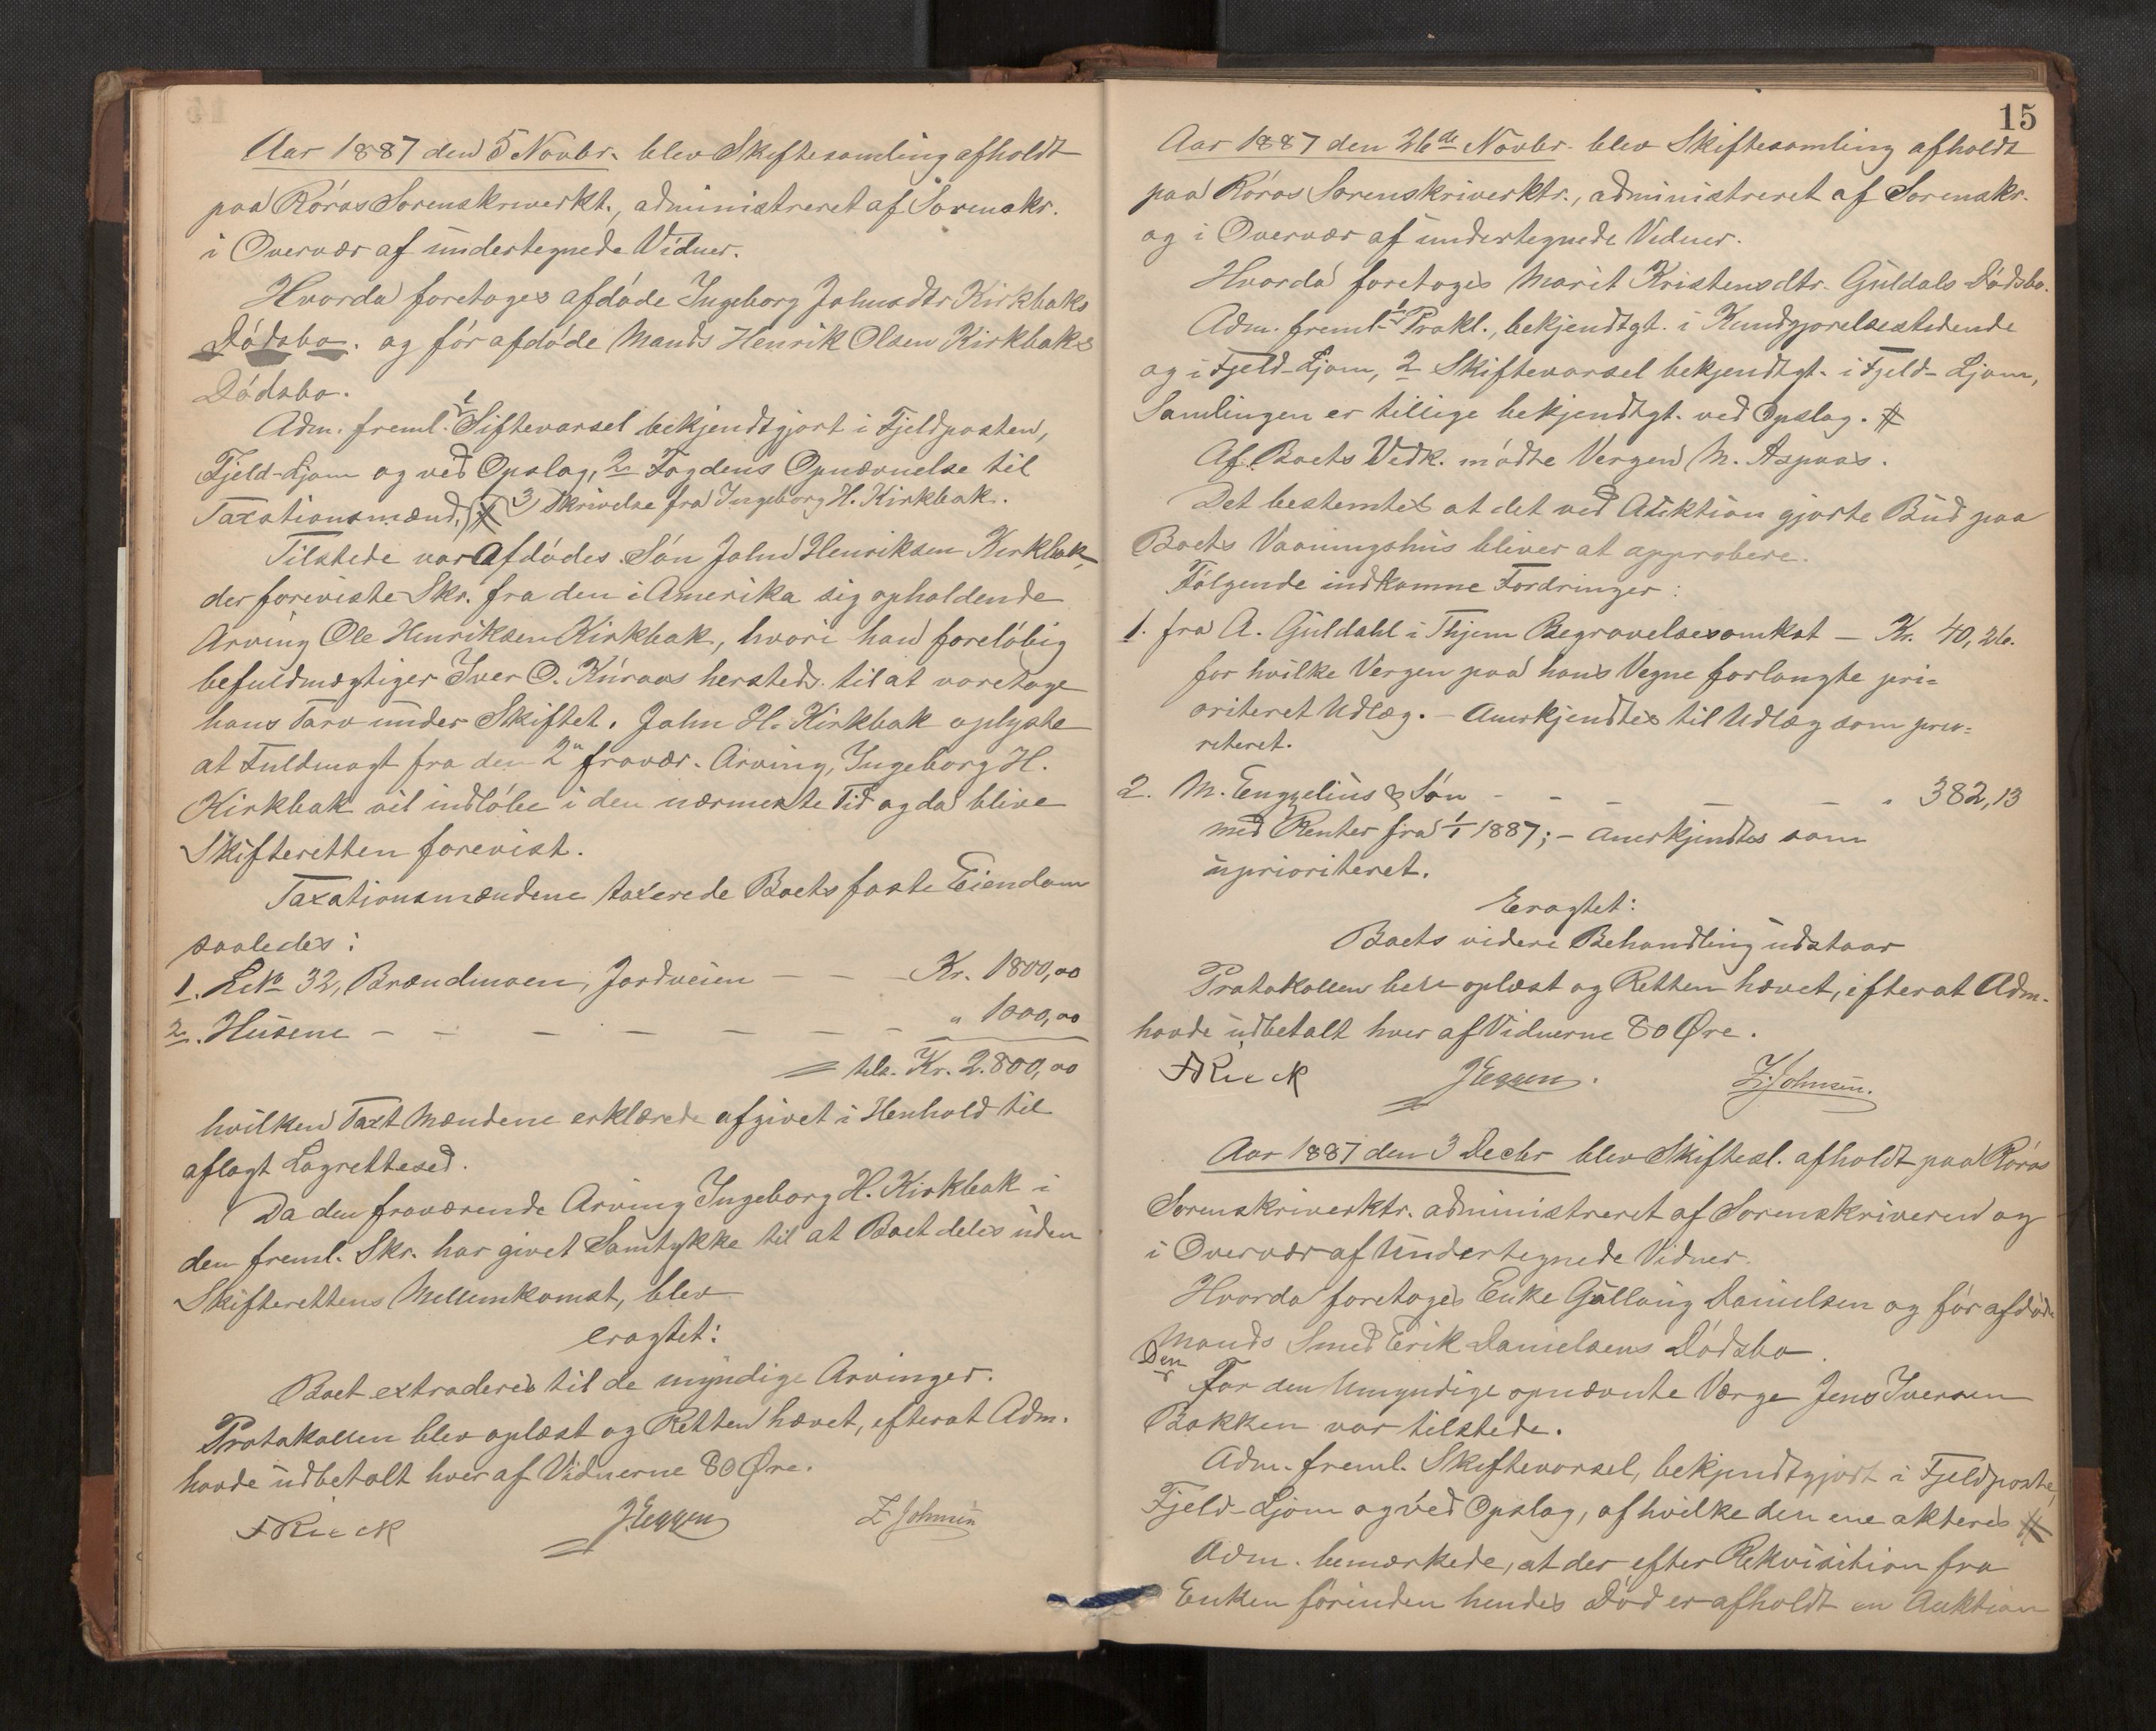 Aar 1887 den 5 Novbr. blev Skiftesamling afholdt
paa Röros Sorenskriverkt., administreret af Sorenskr.
i Overvær af undertegnede Vidner.
Hvorda foretoges afdöde Ingeborg Johnsdtr Kirkbaks
Dödsbo. og för afdöde Mands Henrik Olsen Kirkbaks
Dödsbo.
Adm. freml. 1 Siftevarsel bekjendtgjort i Fjeldposten,
Fjeld-Ljom og ved Opslag, 2 Fogdens Opnævnelse til
Taxationsmænd, 3) Skrivelse fra Ingeborg H. Kirkbak.
Tilstede var Afdödes Sön John Henriksen Kirkbak,
der foreviste Skr. fra den i Amerika sig opholdende
Arving Ole Henriksen Kirkbak, hvori han forelöbig
befuldmægtiger Iver O. Kuraas hersteds. til at varetage
hans Tarv under Skiftet. John H. Kirkbak oplyste
at Fuldmagt fra den 2n fravær. Arving, Ingeborg H.
Kirkbak vil indlöbe i den nærmeste Tid og da blive
Skifteretten forevist.
Taxationsmændene taxerede Boets faste Eiendom
saaledes:
1. LNo 32, Brændmoen, Jordveien — — — Kr. 1800,00
2. Husene — — — — — — — " 1000,00
tils. Kr. 2.800,00
hvilken Taxt Mændene erklærede afgivet i Henhold til
aflagt Lagrettesed.
Da den fraværende Arving Ingeborg H. Kirkbak i
den freml. Skr. har givet Samtykke til at Boet deles uden
Skifterettens Mellemkomst, blev
eragtet:
Boet extraderes til de myndige Arvinger.
Protokollen blev oplæst og Retten hævet, efterat Adm.
havde udbetalt hver af Vidnerne 80 Øre.
F Rieck J. Eggen Z Johnsen
15
Aar 1887 den 26de Novbr. blev Skiftesamling afholdt
paa Röros Sorenskriverktr., administreret af Sorenskr.
og i Overvær af undertegnede Vidner.
Hvorda foretoges Marit Kristensdtr. Guldals Dödsbo.
Adm. freml. 1 Prokl., bekjendtgt. i Kundgjorelsestidende
og i Fjeld-Ljom, 2 Skiftevarsel bekjendtgt. i Fjeld-Ljom,
Samlingen er tillige bekjendtgt. ved Opslag. #
Af Boets Vedk. mödte Vergen N. Aspaas.
Det bestemtes at det ved Auktion gjorte Bud paa
Boets Vaaningshus bliver at approbere.
Fölgende indkomne Fordringer:
1. fra A. Guldahl i Thjem Begravelsesomkst — Kr. 40,26.
for hvilke Vergen paa hans Vegne forlangte pri-
oriteret Udlæg. – Anerkjendtes til Udlæg som prio-
riteret.
2. M. Engzelius & Sön — — — — — " 382,13
med Renter fra 1/1 1887; – anerkjendtes som
uprioriteret.
Eragtet:
Boets videre Behandling udstaar
Protokollen blev oplæst og Retten hævet, efterat Adm.
havde udbetalt hver af Vidnerne 80 Øre.
F Rieck J Eggen. Z. Johnsen.
Aar 1887 den 3 Decbr blev Skiftesl. afholdt paa Röros
Sorenskriverktr. administreret af Sorenskriveren og
i Overvær af Undertegnede Vidner.
Hvorda foretoges Enke Gullaug Danielsen og för afdöde
Mands Smed Erik Danielsens Dödsbo.
Den For den Umyndige opnævnte Værge Jens Iversen
Bakken var tilstede.
Adm. freml. Skiftevarsel, bekjendtgjort i Fjeldposten,
Fjeld-Ljom og ved Opslag, af hvilke den ene akteres #
Adm. bemærkede, at der efter Rekvisition fra
Enken förinden hendes Död er afholdt en Auktion